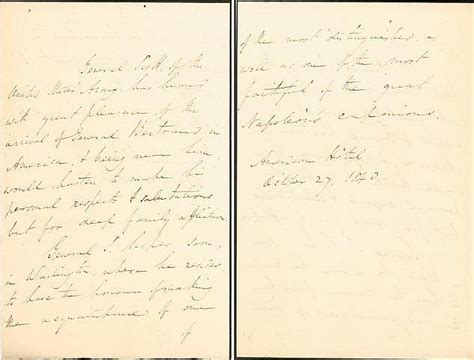 General Scott of the
United States Army has heard
with great pleasure, of the
arrival of General Bertrand in
America, & being near him,
would hasten to make his
personal respects & salutations
but for deep family affliction.
General S. hopes soon,
in Washington, where he resides,
to have the honour of making
the acquaintance of one
of
of the most distinguished, as
well as one of the most
faithful of the great
Napoleon's companions.
American Hotel,
October 27, 1843.